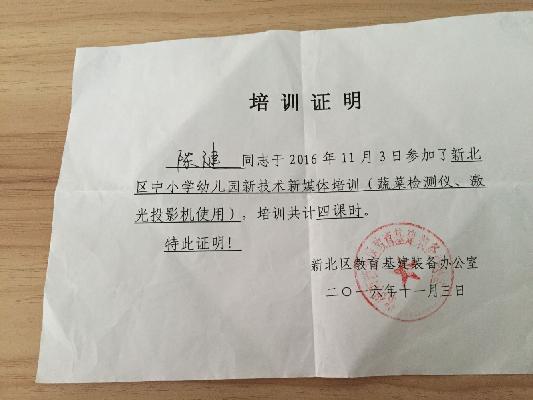 培训证明
陈健 同志于2016年11月3日参加了新北
区中小学幼儿园新技术新媒体培训（蔬菜检测仪、激
光投影机使用），培训共计四课时。
特此证明！
新北区教育基建装备办公室
二〇一六年十一月三日